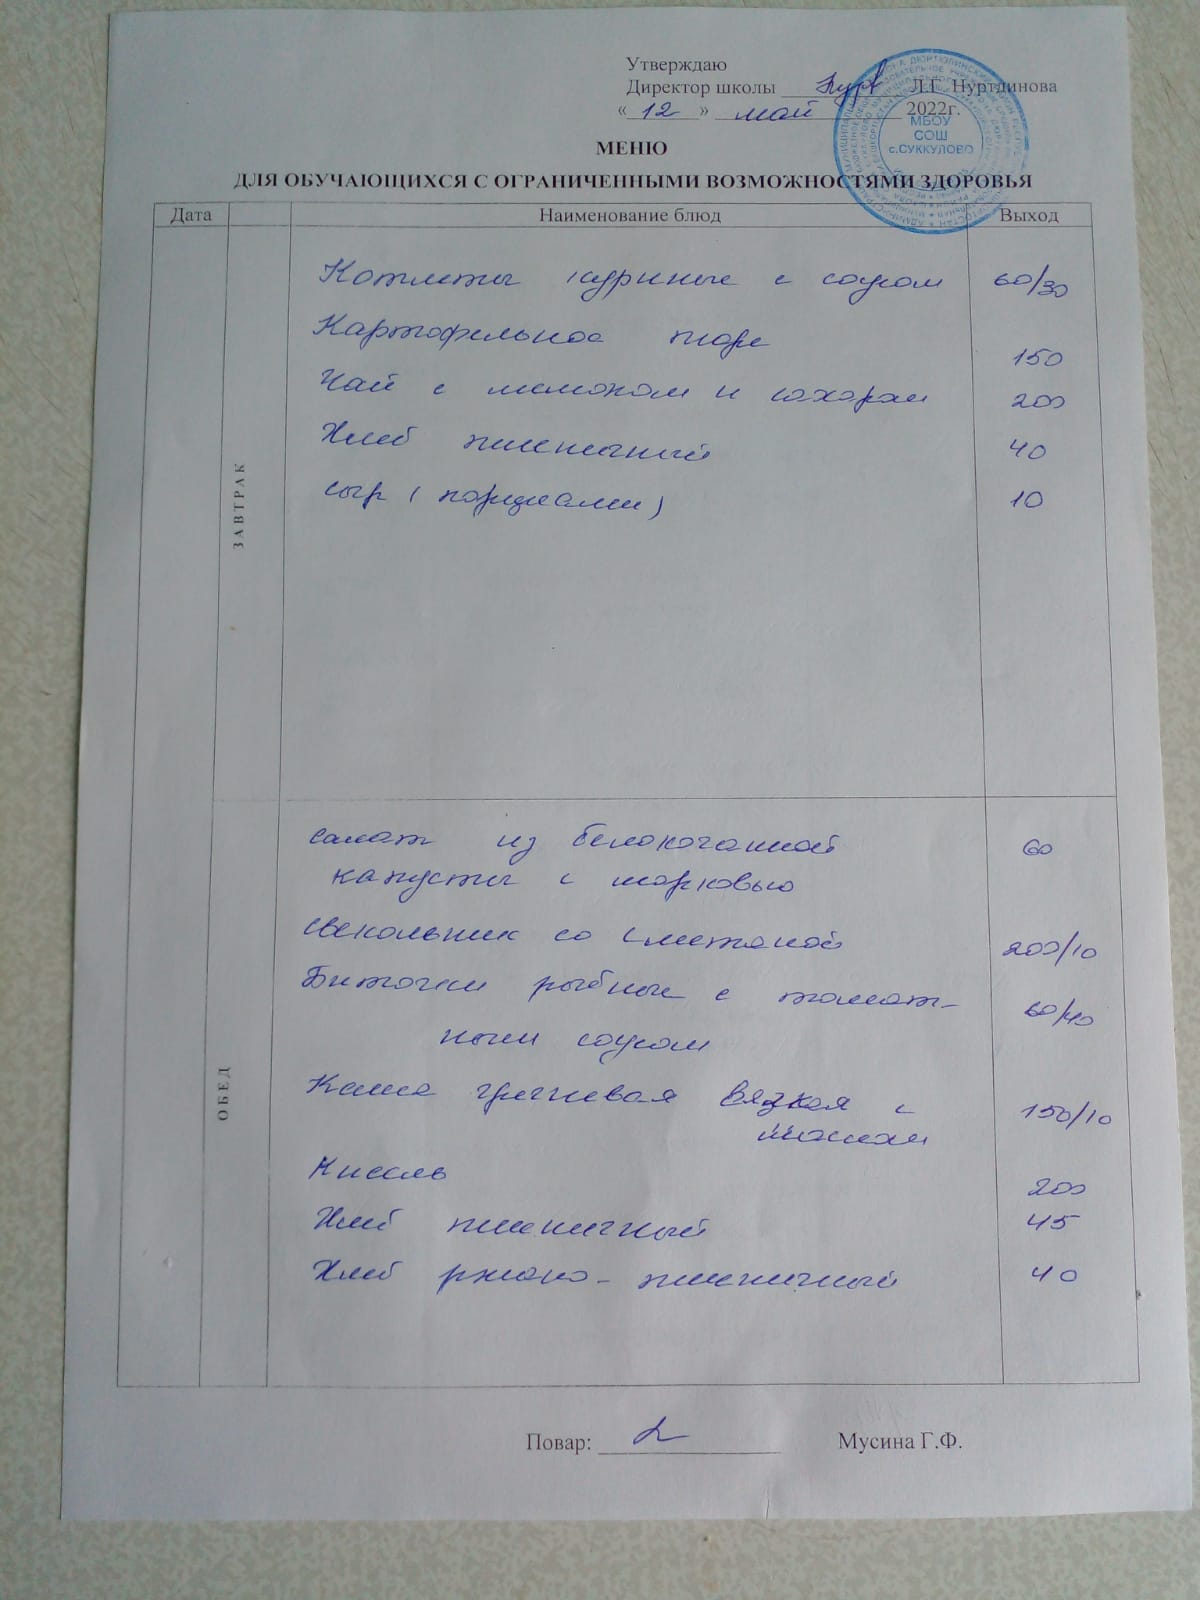 Утверждаю
Директор школы Л.Г. Нуртдинова
« 12 » май 2022г.
МБОУ
СОШ
с.СУККУЛОВО
МЕНЮ
ДЛЯ ОБУЧАЮЩИХСЯ С ОГРАНИЧЕННЫМИ ВОЗМОЖНОСТЯМИ ЗДОРОВЬЯ
Дата Наименование блюд Выход
ЗАВТРАК
Котлеты куриные с соусом 60/30
Картофельное пюре 150
Чай с лимоном и сахаром 200
Хлеб пшеничный 40
сыр (порциями) 10
ОБЕД
салат из белокочанной 60
капусты с морковью
свекольник со сметаной 200/10
Биточки рыбные с томат- 60/40
ным соусом
Каша гречневая вязкая с 150/10
маслом
Кисель 200
Хлеб пшеничный 45
Хлеб ржано-пшеничный 40
Повар: Мусина Г.Ф.